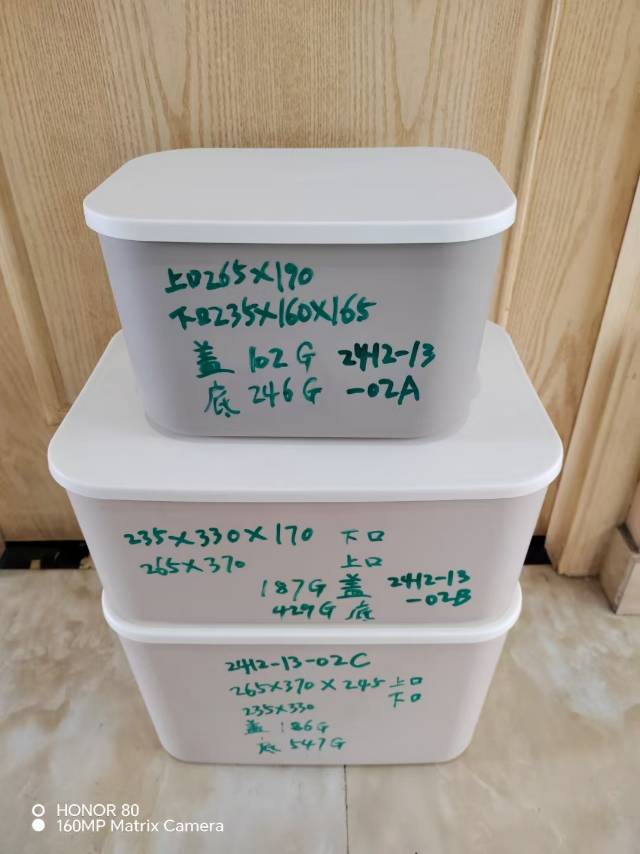 上口265×190
下口235×160×165
盖 102G 2412-13
底 246G -02A
235×330×170 下口
265×370 上口
187G 盖 2412-13
429G 底 -02B
2412-13-02C
265×370×245 上口
235×330 下口
盖 186G
底 547G
HONOR 80
160MP Matrix Camera